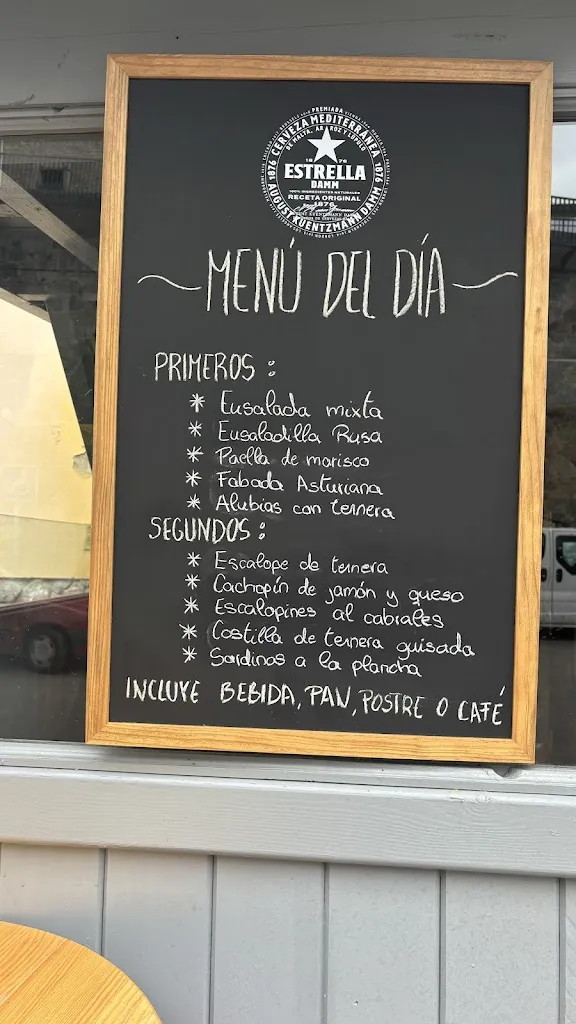 PREMIADA
CERVEZA MEDITERRANEA
DE MALTA, ARROZ Y LUPULO
1876 1876
ESTRELLA
DAMM
100% INGREDIENTES NATURALES
RECETA ORIGINAL
1876
AUGUST KUENTZMANN DAMM
MENÚ DEL DÍA
PRIMEROS :
* Ensalada mixta
* Ensaladilla Rusa
* Paella de marisco
* Fabada Asturiana
* Alubias con ternera
SEGUNDOS :
* Escalope de ternera
* Cachopín de jamón y queso
* Escalopines al cabrales
* Costilla de ternera guisada
* Sardinas a la plancha
INCLUYE BEBIDA, PAN, POSTRE O CAFÉ